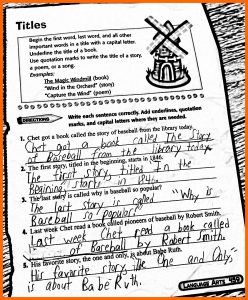 Titles
Begin the first word, last word, and all other
important words in a title with a capital letter.
Underline the title of a book.
Use quotation marks to write the title of a story,
a poem, or a song.
Examples:
The Magic Windmill (book)
"Wind in the Orchard" (story)
"Capture the Wind" (poem)
DIRECTIONS
Write each sentence correctly. Add underlines, quotation
marks, and capital letters where they are needed.
1. Chet got a book called the story of baseball from the library today.
Chet got a book called The Story
of Baseball from the library today.
2. The first story, titled in the beginning, starts in
The first story, titled In the
starts in
3. The last story is called why is baseball so popular?
The last story is called "Why is
Baseball so popular?"
4. Last week Chet read a book called pioneers of baseball by Robert Smith.
Last week Chet read a book called
of Baseball by Robert Smith.
5. His favorite story is the one and only, is about Babe Ruth.
His favorite story, The One and Only,"
is about Babe Ruth.
LANGUAGE ARTS